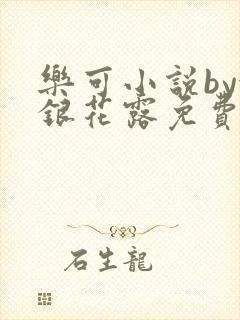 樂可小説by
銀花露免費
石生龍